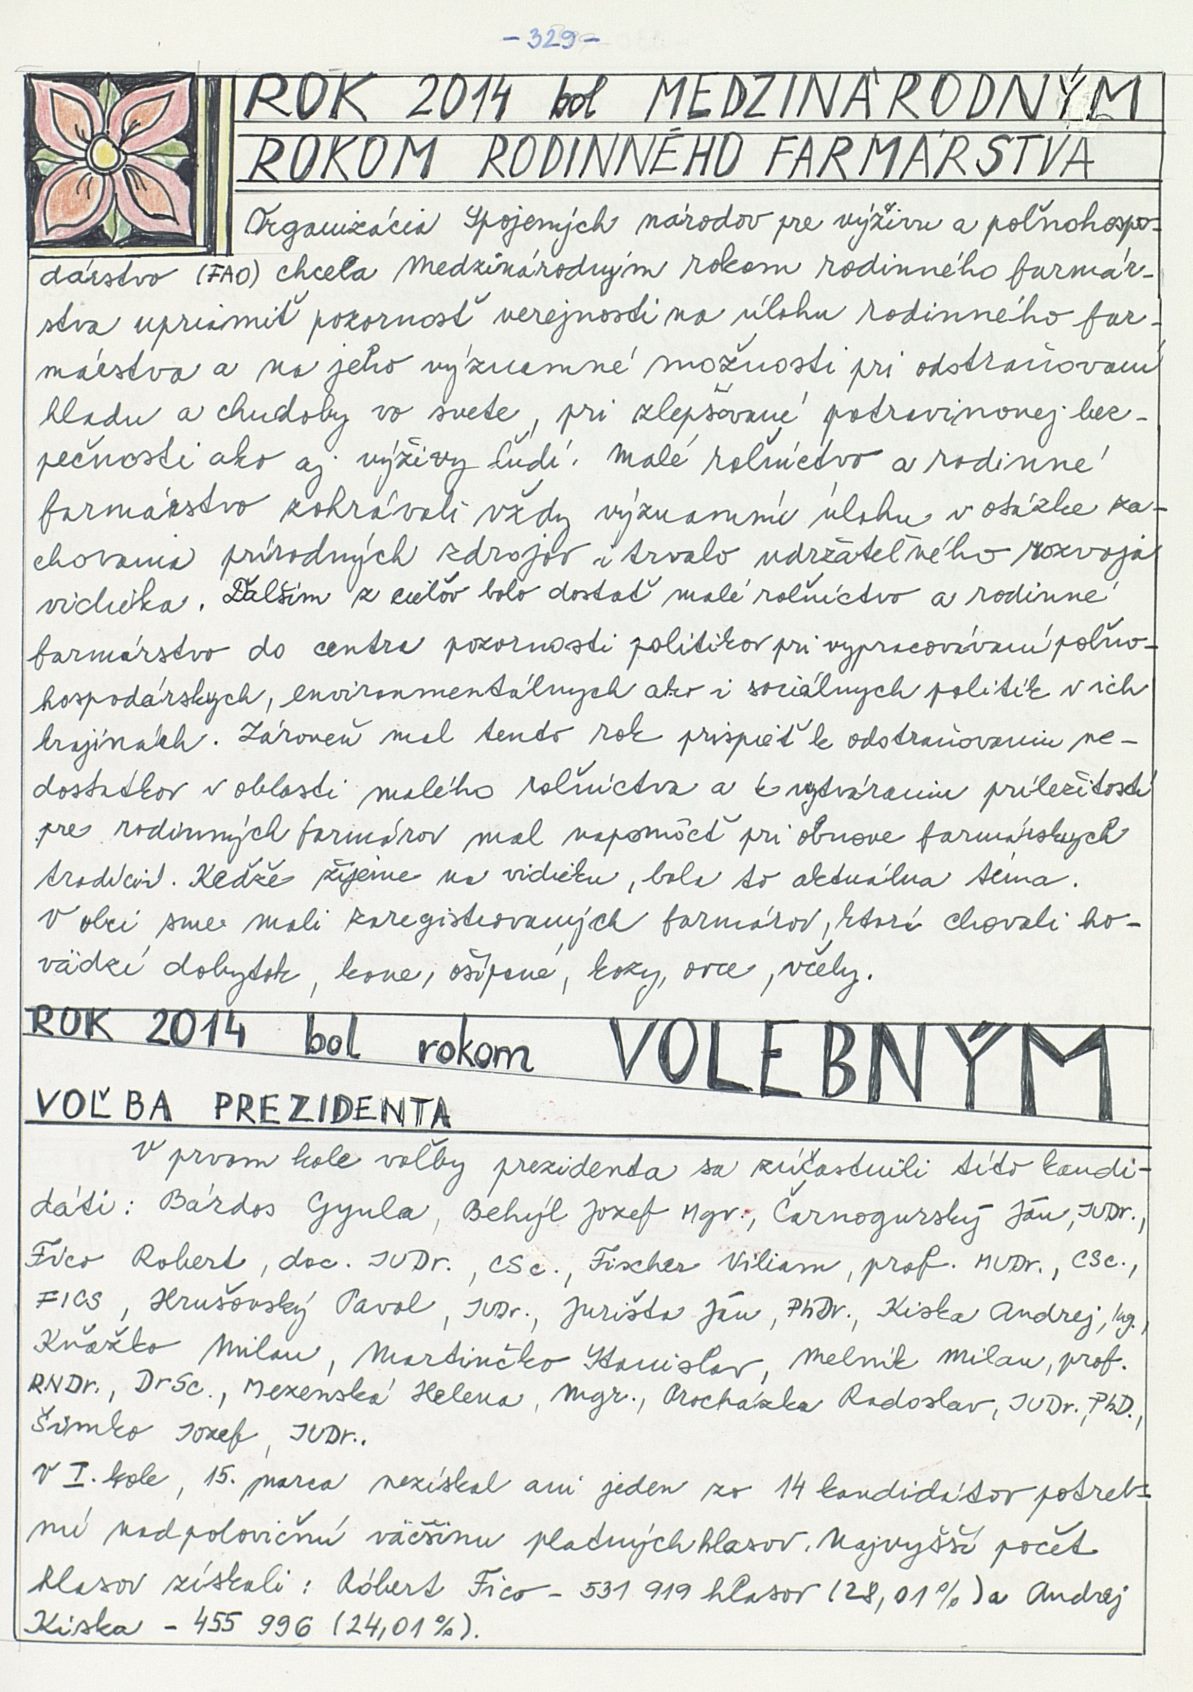 - 329 -
ROK 2014 bol MEDZINÁRODNÝM
ROKOM RODINNÉHO FARMÁRSTVA
Organizácia Spojených národov pre výživu a poľnohospo-
dárstvo (FAO) chcela Medzinárodným rokom rodinného farmár-
stva upriamiť pozornosť verejnosti na úlohu rodinného far-
márstva a na jeho významné možnosti pri odstraňovaní
hladu a chudoby vo svete, pri zlepšovaní potravinovej bez-
pečnosti ako aj výživy ľudí. Malé roľníctvo a rodinné
farmárstvo zohrávali vždy významnú úlohu v otázke za-
chovania prírodných zdrojov i trvalo udržateľného rozvoja
vidieka. Ďalším z cieľov bolo dostať malé roľníctvo a rodinné
farmárstvo do centra pozornosti politikov pri vypracovávaní poľno-
hospodárskych, environmentálnych ako i sociálnych politík v ich
krajinách. Zároveň mal tento rok prispieť k odstraňovaniu ne-
dostatkov v oblasti malého roľníctva a k vytváraniu príležitostí
pre rodinných farmárov mal napomôcť pri obnove farmárskych
tradícií. Keďže žijeme na vidieku, bola to aktuálna téma.
V obci sme mali zaregistrovaných farmárov, ktorí chovali ho-
vädzí dobytok, kone, ošípané, kozy, ovce, včely.
ROK 2014 bol rokom VOLEBNÝM
VOĽBA PREZIDENTA
V prvom kole voľby prezidenta sa zúčastnili títo kandi-
dáti: Bárdos Gyula, Behýl Jozef Mgr., Čarnogurský Ján, JUDr.,
Fico Robert, doc. JUDr., CSc., Fischer Viliam, prof. MUDr., CSc.,
FICS, Hrušovský Pavol, JUDr., Jurišta Ján, PhDr., Kiska Andrej, Ing.,
Kňažko Milan, Martinčko Stanislav, Melník Milan, prof.
RNDr., DrSc., Mezenská Helena, Mgr., Procházka Radoslav, JUDr., PhD.,
Šimko Jozef, JUDr..
V I. kole, 15. marca nezískal ani jeden zo 14 kandidátov potreb-
nú nadpolovičnú väčšinu platných hlasov. Najvyšší počet
hlasov získali: Róbert Fico - 531 919 hlasov (28,01%) a Andrej
Kiska - 455 996 (24,01%).